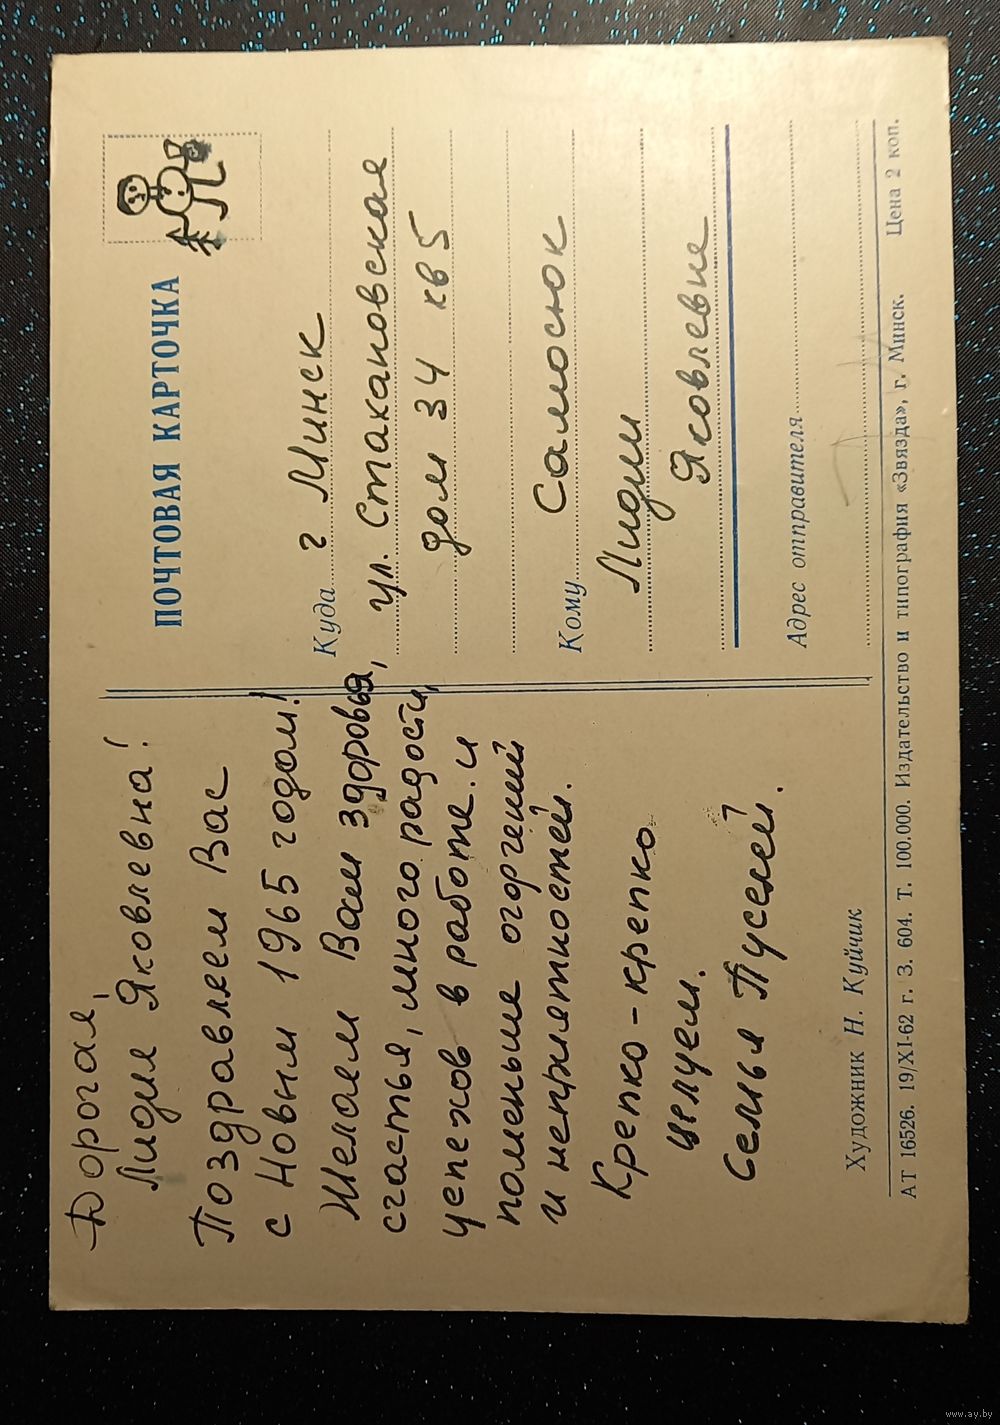 Дорогая,
Лидия Яковлевна!
Поздравляем Вас
с Новым 1965 годом!
Желаем Вам здоровья,
счастья, много радости,
успехов в работе и
поменьше огорчений
и неприятностей.
Крепко-крепко
целуем.
Семья Пусеней.
Художник Н. Куйчик
ПОЧТОВАЯ КАРТОЧКА
Куда г Минск
ул. Стакановская
дом 34 кв 5
Кому Самосюк
Лидии
Яковлевне
Адрес отправителя
АТ 16526. 19/XI-62 г. З. 604. Т. 100.000. Издательство и типография «Звязда», г. Минск. Цена 2 коп.
www.ay.by